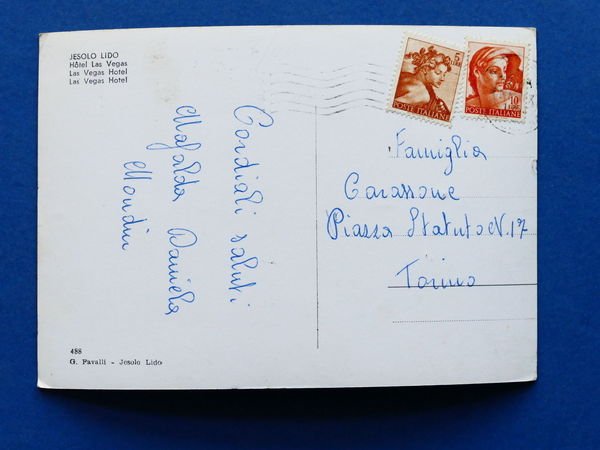 JESOLO LIDO
Hôtel Las Vegas
Las Vegas Hotel
Las Vegas Hotel
Cordiali saluti
Mafalda Daniela
Mondin
5
LIRE
POSTE ITALIANE
10
LIRE
POSTE ITALIANE
Famiglia
Carassone
Piazza Statuto N. 17
Torino
488
G. Favalli - Jesolo Lido